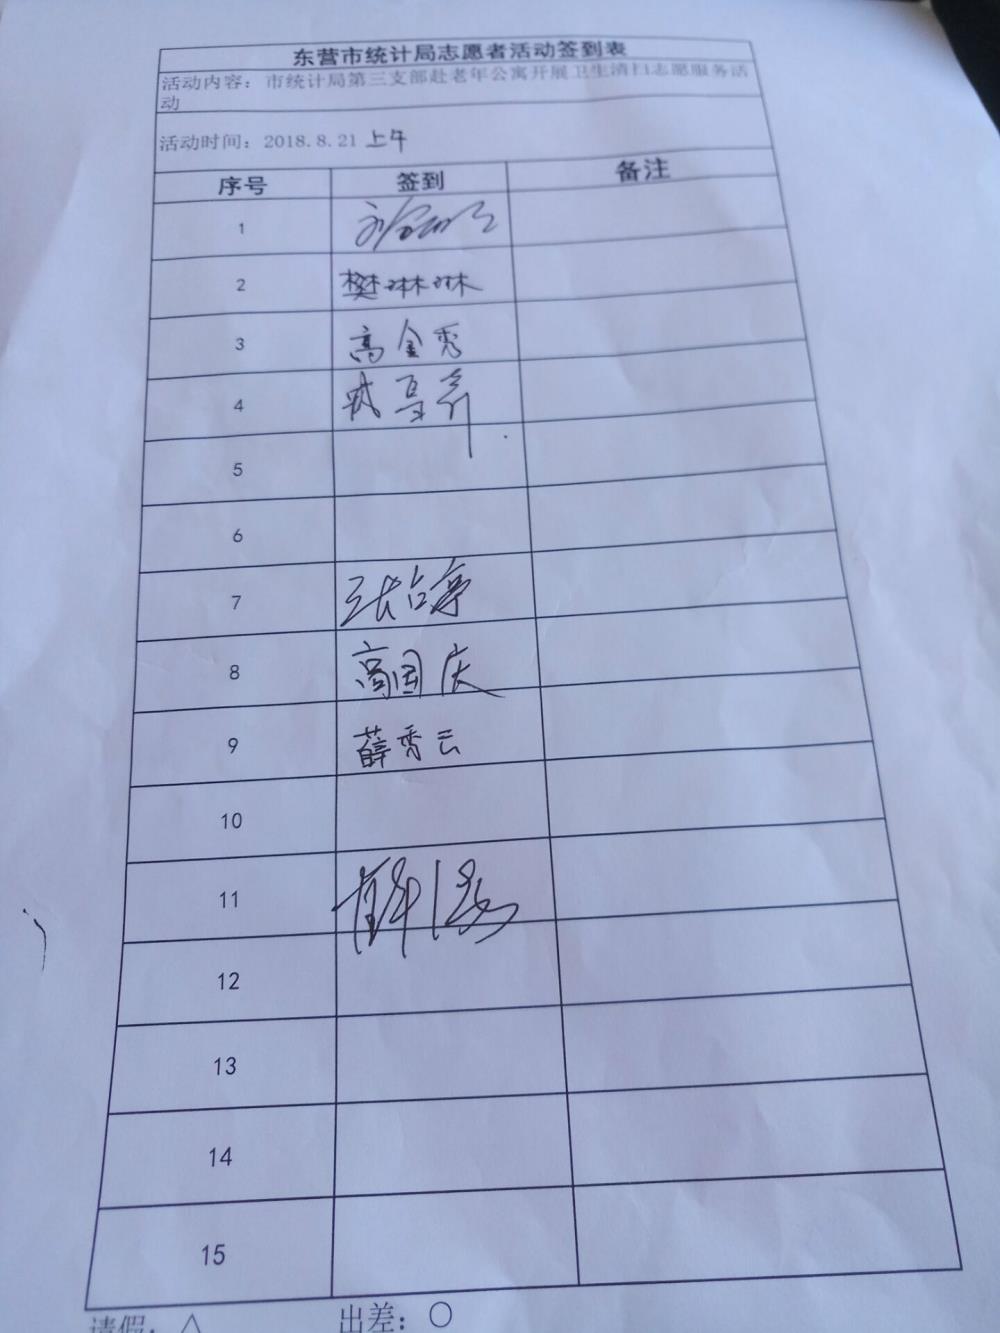 东营市统计局志愿者活动签到表
活动内容：市统计局第三支部赴老年公寓开展卫生清扫志愿服务活
动
活动时间：2018.8.21 上午
序号 签到 备注
1
2 樊琳琳
3 高金秀
4
5
6
7
8 高国庆
9 薛秀云
10
11
12
13
14
15
请假：△ 出差：○